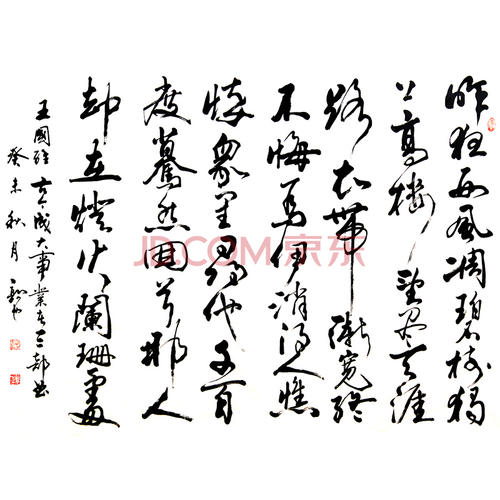 昨夜西風凋碧樹獨
上高樓望尽天涯
路衣帶漸寬終
不悔為伊消得人憔
悴眾里尋他千百
度驀然回首那人
却在燈火闌珊處
王國維 成大事業者三部曲
癸未秋月
JD.COM 京东